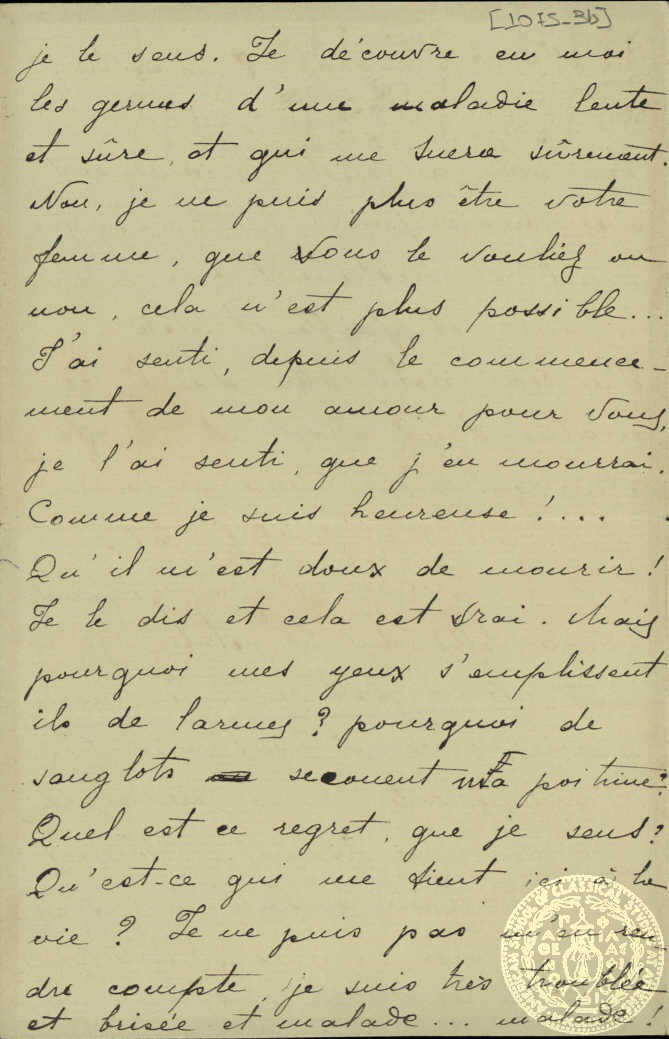 [1075-3b]
je le sens. Je découvre en moi
les germes d'une maladie lente
et sûre, et qui me tuera sûrement.
Non, je ne puis plus être votre
femme, que vous le vouliez ou
non, cela n'est plus possible...
J'ai senti, depuis le commence-
ment de mon amour pour vous,
je l'ai senti, que j'en mourrai.
Comme je suis heureuse!...
Qu'il m'est doux de mourir!
Je le dis et cela est vrai. Mais
pourquoi mes yeux s'emplissent
ils de larmes? pourquoi de
sanglots secouent ma poitrine?
Quel est ce regret, que je sens?
Qu'est-ce qui me tient ici à la
vie? Je ne puis pas m'en ren
dre compte, je suis très troublée
et brisée et malade... malade!